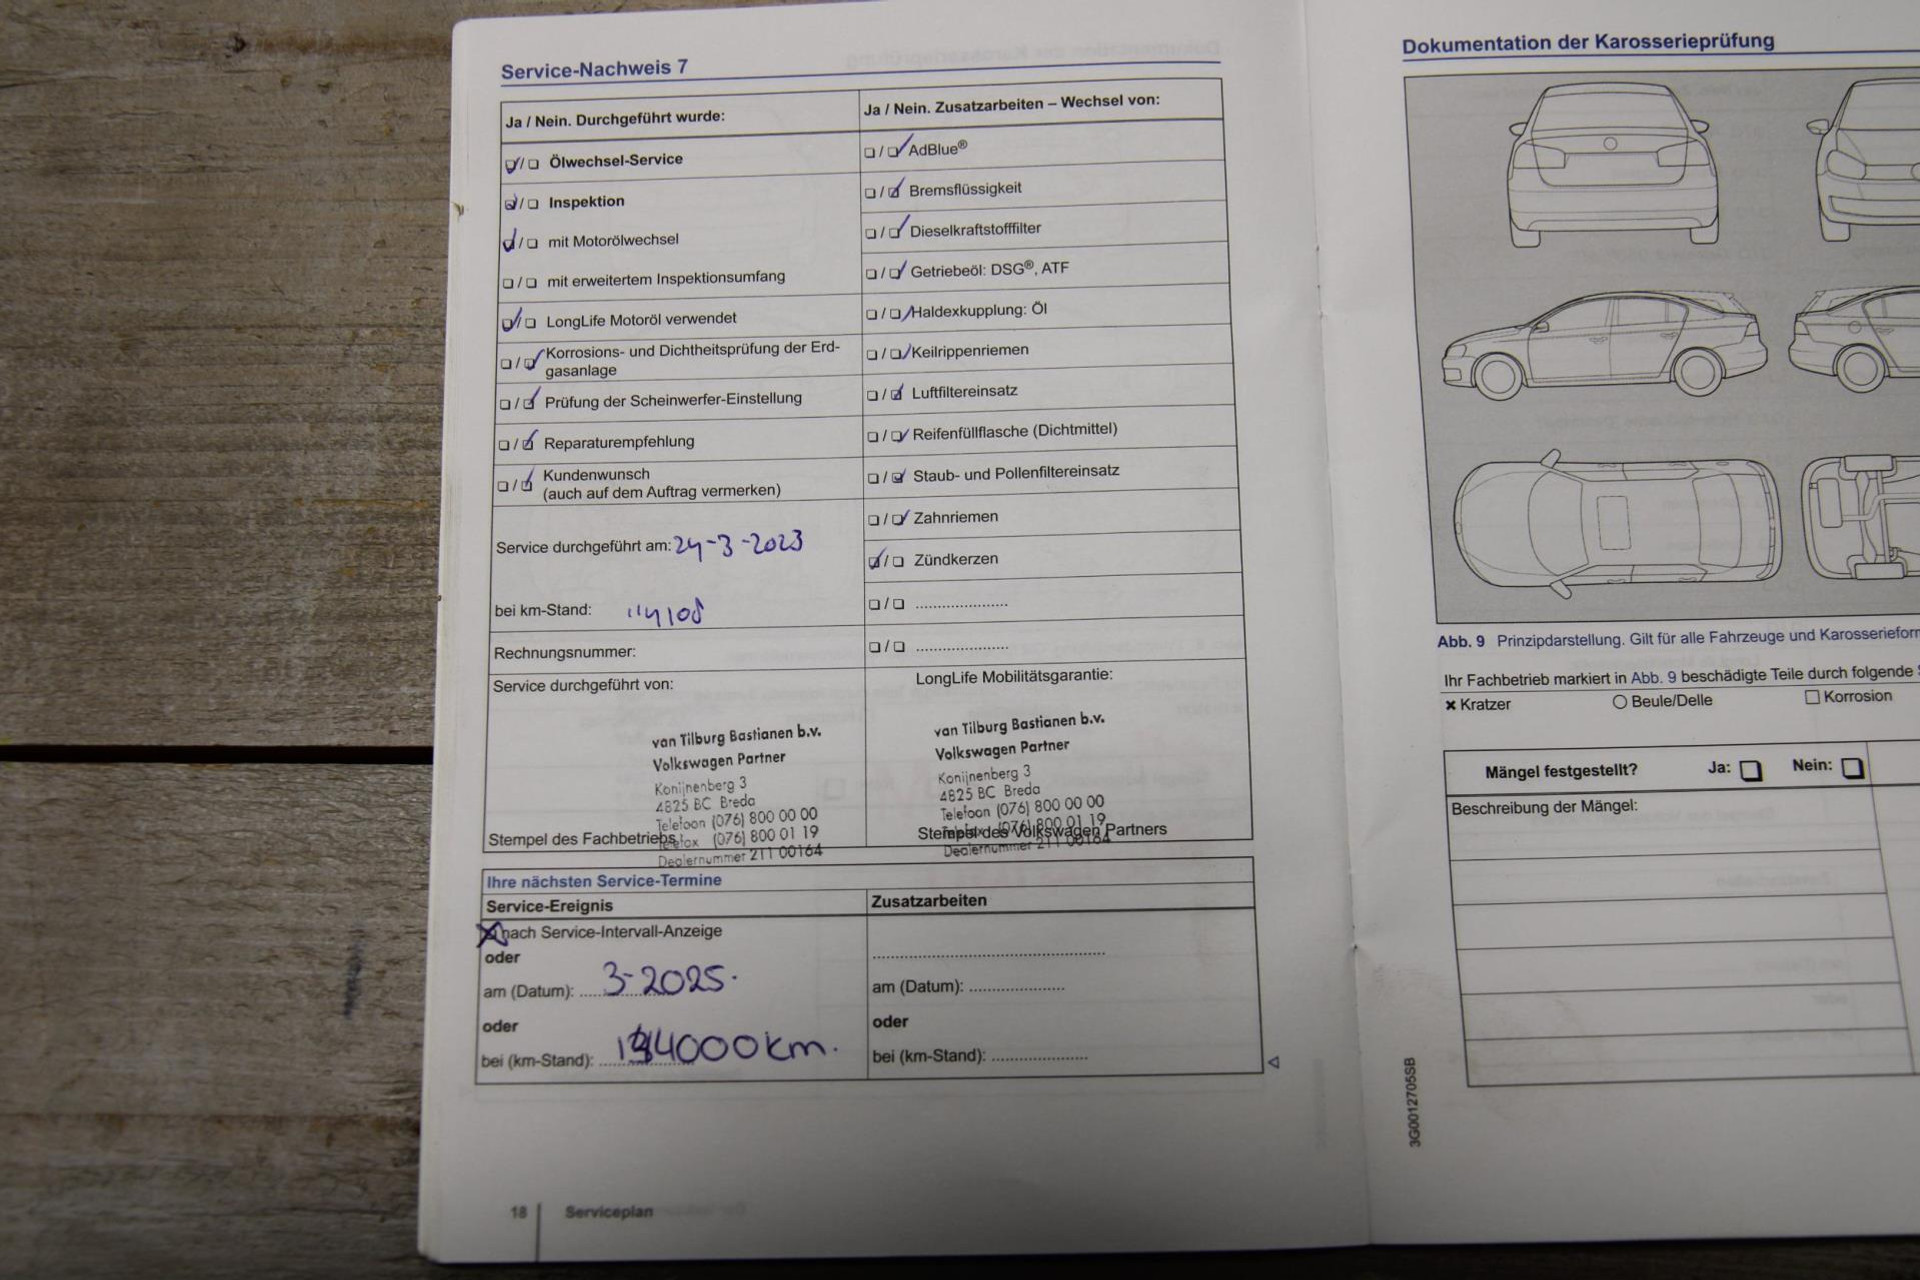 Service-Nachweis 7
Ja / Nein. Durchgeführt wurde:
Ölwechsel-Service
Inspektion
mit Motorölwechsel
mit erweitertem Inspektionsumfang
LongLife Motoröl verwendet
Korrosions- und Dichtheitsprüfung der Erd-
gasanlage
Prüfung der Scheinwerfer-Einstellung
Reparaturempfehlung
Kundenwunsch
(auch auf dem Auftrag vermerken)
Service durchgeführt am: 24-3-2023
bei km-Stand: 114108
Rechnungsnummer:
Service durchgeführt von:
van Tilburg Bastianen b.v.
Volkswagen Partner
Konijnenberg 3
4825 BC Breda
Telefoon (076) 800 00 00
Telefax (076) 800 01 19
Dealernummer 211 00164
Stempel des Fachbetriebs
Ja / Nein. Zusatzarbeiten – Wechsel von:
AdBlue®
Bremsflüssigkeit
Dieselkraftstofffilter
Getriebeöl: DSG®, ATF
Haldexkupplung: Öl
Keilrippenriemen
Luftfiltereinsatz
Reifenfüllflasche (Dichtmittel)
Staub- und Pollenfiltereinsatz
Zahnriemen
Zündkerzen
LongLife Mobilitätsgarantie:
van Tilburg Bastianen b.v.
Volkswagen Partner
Konijnenberg 3
4825 BC Breda
Telefoon (076) 800 00 00
Telefax (076) 800 01 19
Dealernummer 211 00164
Stempel des Volkswagen Partners
Ihre nächsten Service-Termine
Service-Ereignis
nach Service-Intervall-Anzeige
oder
am (Datum): 3-2025.
oder
bei (km-Stand): 144000 km.
Zusatzarbeiten
am (Datum):
oder
bei (km-Stand):
18 Serviceplan
Dokumentation der Karosserieprüfung
Abb. 9 Prinzipdarstellung. Gilt für alle Fahrzeuge und Karosserieform
Ihr Fachbetrieb markiert in Abb. 9 beschädigte Teile durch folgende
Kratzer Beule/Delle Korrosion
Mängel festgestellt? Ja: Nein:
Beschreibung der Mängel:
3G0012705SB